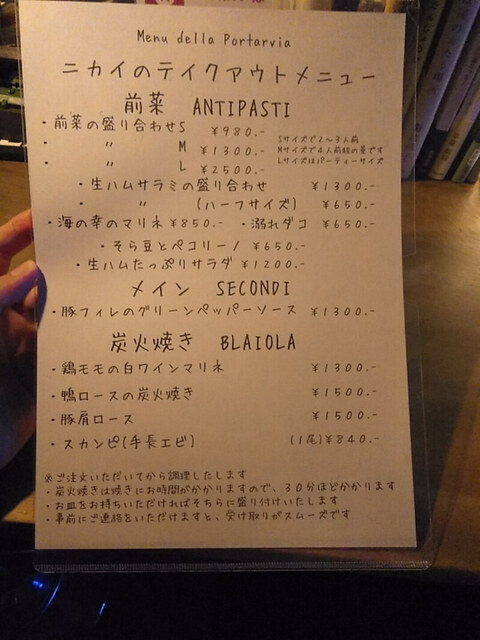 Menu della Portarvia
ニカイのテイクアウトメニュー
前菜 ANTIPASTI
・前菜の盛り合わせS ¥980.-
・ 〃 M ¥1300.-
・ 〃 L ¥2500.-
Sサイズで2〜3人前
Mサイズで4人前位の量です
Lサイズはパーティーサイズ
・生ハムサラミの盛り合わせ ¥1300.-
・ 〃 (ハーフサイズ) ¥650.-
・海の幸のマリネ ¥850.- ・溺れダコ ¥650.-
・そら豆とペコリーノ ¥650.-
・生ハムたっぷりサラダ ¥1200.-
メイン SECONDI
・豚フィレのグリーンペッパーソース ¥1300.-
炭火焼き BLAIOLA
・鶏モモの白ワインマリネ ¥1300.-
・鴨ロースの炭火焼き ¥1500.-
・豚肩ロース ¥1500.-
・スカンピ(手長エビ) (1尾)¥840.-
※ご注文いただいてから調理したします
・炭火焼きは焼きにお時間がかかりますので、30分ほどかかります
・お皿をお持ちいただければそちらに盛り付けいたします
・事前にご連絡をいただけますと、受け取りがスムーズです